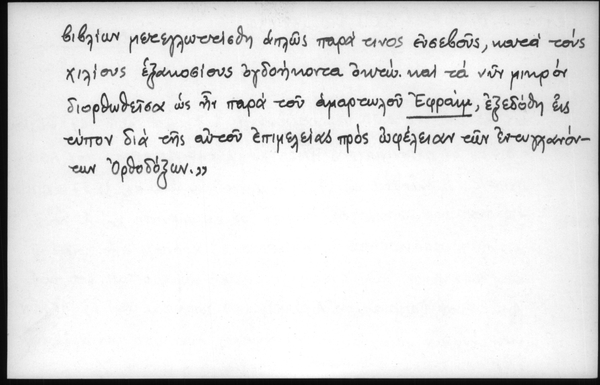 βιβλίων μετεγλωττίσθη ἁπλῶς παρά τινος εὐσεβοῦς, κατά τούς
χιλίους ἑξακοσίους ὀγδοήκοντα ὀκτώ. καί τά νῦν μικρόν
διορθωθεῖσα ὡς ἦν παρά τοῦ ἁμαρτωλοῦ Ἐφραίμ, ἐξεδόθη εἰς
τύπον διά τῆς αὐτοῦ ἐπιμελείας πρός ὠφέλειαν τῶν ἐντυγχανόν-
των Ὀρθοδόξων.»